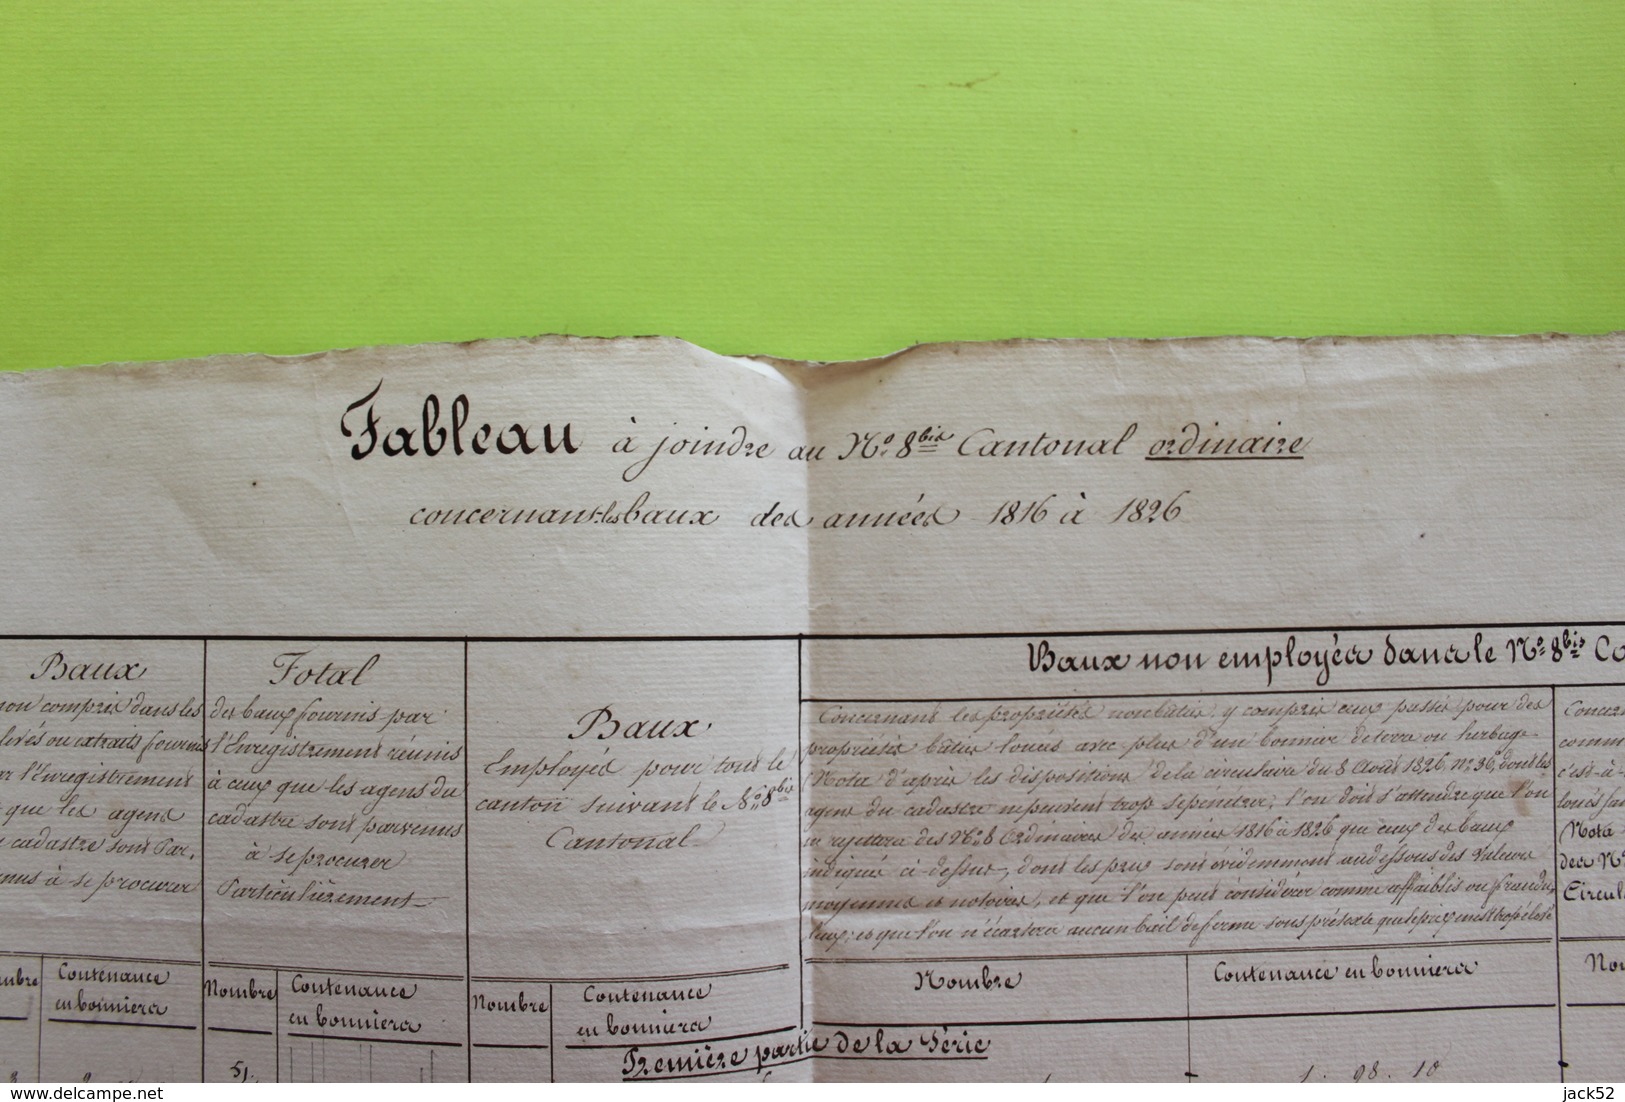 Tableau à joindre au N.º 8bis Cantonal ordinaire
concernant les baux des années 1816 à 1826
Baux
non compris dans les
relevés ou extraits fournis
par l'Enregistrement
que les agens
cadastre sont Par,
venus à se procurer
Total
des baux fournis par
l'Enregistrement réunis
à ceux que les agens du
cadastre sont parvenus
à se procurer
Particulièrement
Baux
Employés pour tout le
canton suivant le N.º 8bis
Cantonal
Baux non employés dans le N.º 8bis Ca
Concernant les propriétés non bâties, y compris ceux passés pour des
propriétés bâties louées avec plus d'un bonnier de terre ou herbage
(Nota d'après les dispositions de la circulaire du 8 Août 1826, N.º 36, dont les
agens du cadastre ne peuvent trop se pénétrer, l'on doit s'attendre que l'on
ne rejettera des N.º 8 Ordinaires des années 1816 à 1826 que ceux des baux
indiqués ci-dessus, dont les prix sont évidemment au dessous des Valeurs
moyennes et notoires, et que l'on peut considérer comme affaiblis ou fraudu
leux; et que l'on n'écartera aucun bail de ferme sous prétexte que le prix en est trop élevé
Concern
comm
c'est-à-
loués sa
Nota
des N.º
Circul
Nombre
Contenance
en bonniers
Nombre
Contenance
en bonniers
Nombre
Contenance
en bonniers
Nombre
Contenance en bonniers
Nom
Première partie de la Série
51.
1 . 98 . 10
delcampe.net
jack52